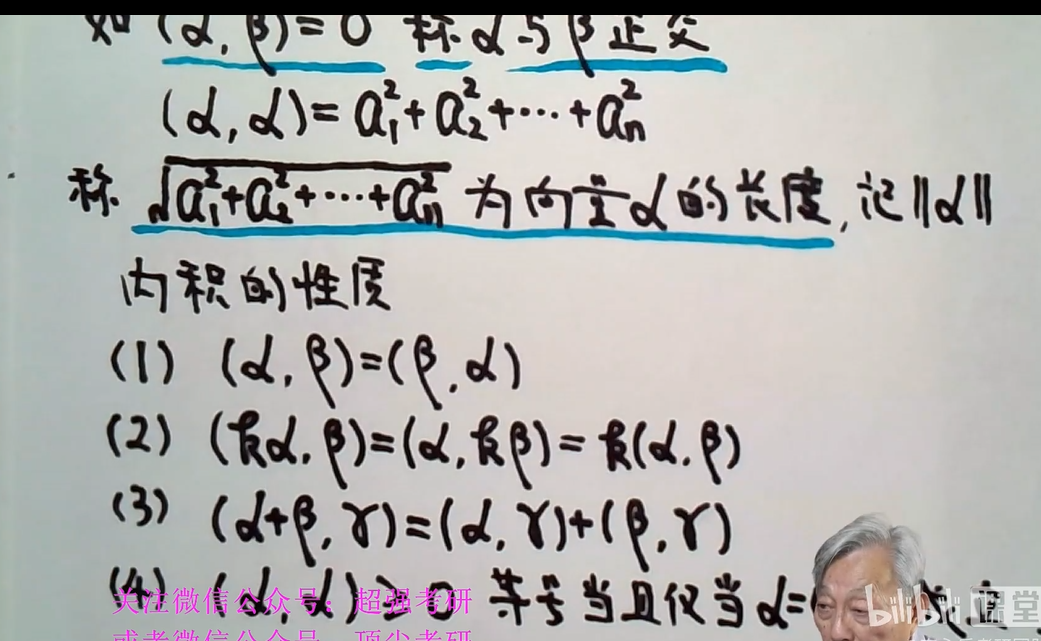 如 (α, β) = 0 称 α 与 β 正交
(α, α) = a₁² + a₂² + ⋯ + aₙ²
称 √(a₁² + a₂² + ⋯ + aₙ²) 为向量 α 的长度, 记 ‖α‖
内积的性质
(1) (α, β) = (β, α)
(2) (kα, β) = (α, kβ) = k(α, β)
(3) (α+β, γ) = (α, γ) + (β, γ)
(4) (α, α) ≥ 0 等号当且仅当 α =
关注微信公众号:超强考研
或者微信公众号 顶尖考研
bilibili 课堂